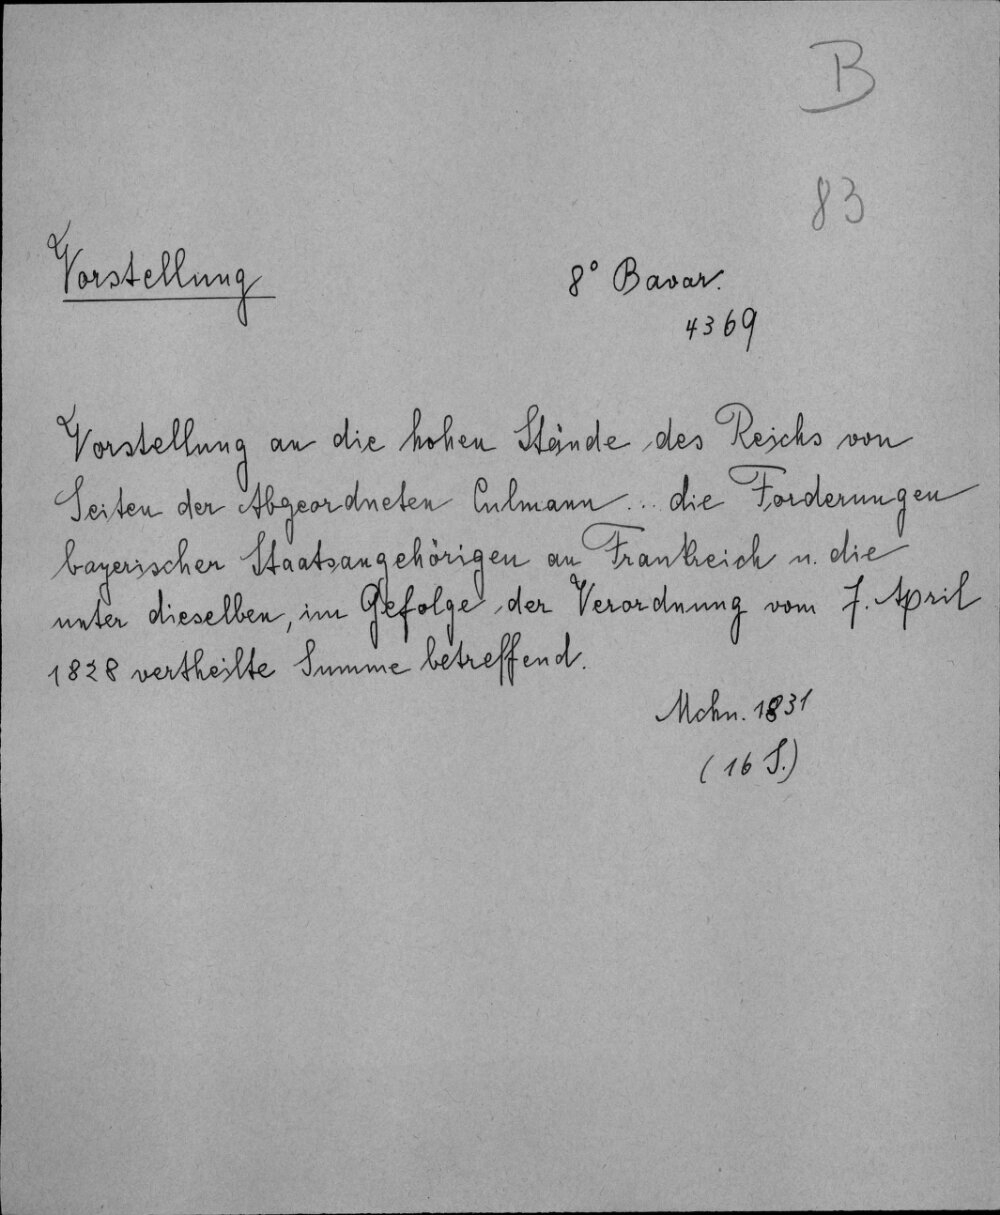 B
83
Vorstellung
8° Bavar.
4369
Vorstellung an die hohen Stände des Reichs von
Seiten der Abgeordneten Culmann... die Forderungen
bayerischer Staatsangehörigen an Frankreich u. die
unter dieselben, im Gefolge der Verordnung vom 7. April
1828 vertheilte Summe betreffend.
Mchn. 1831
(16 S.)